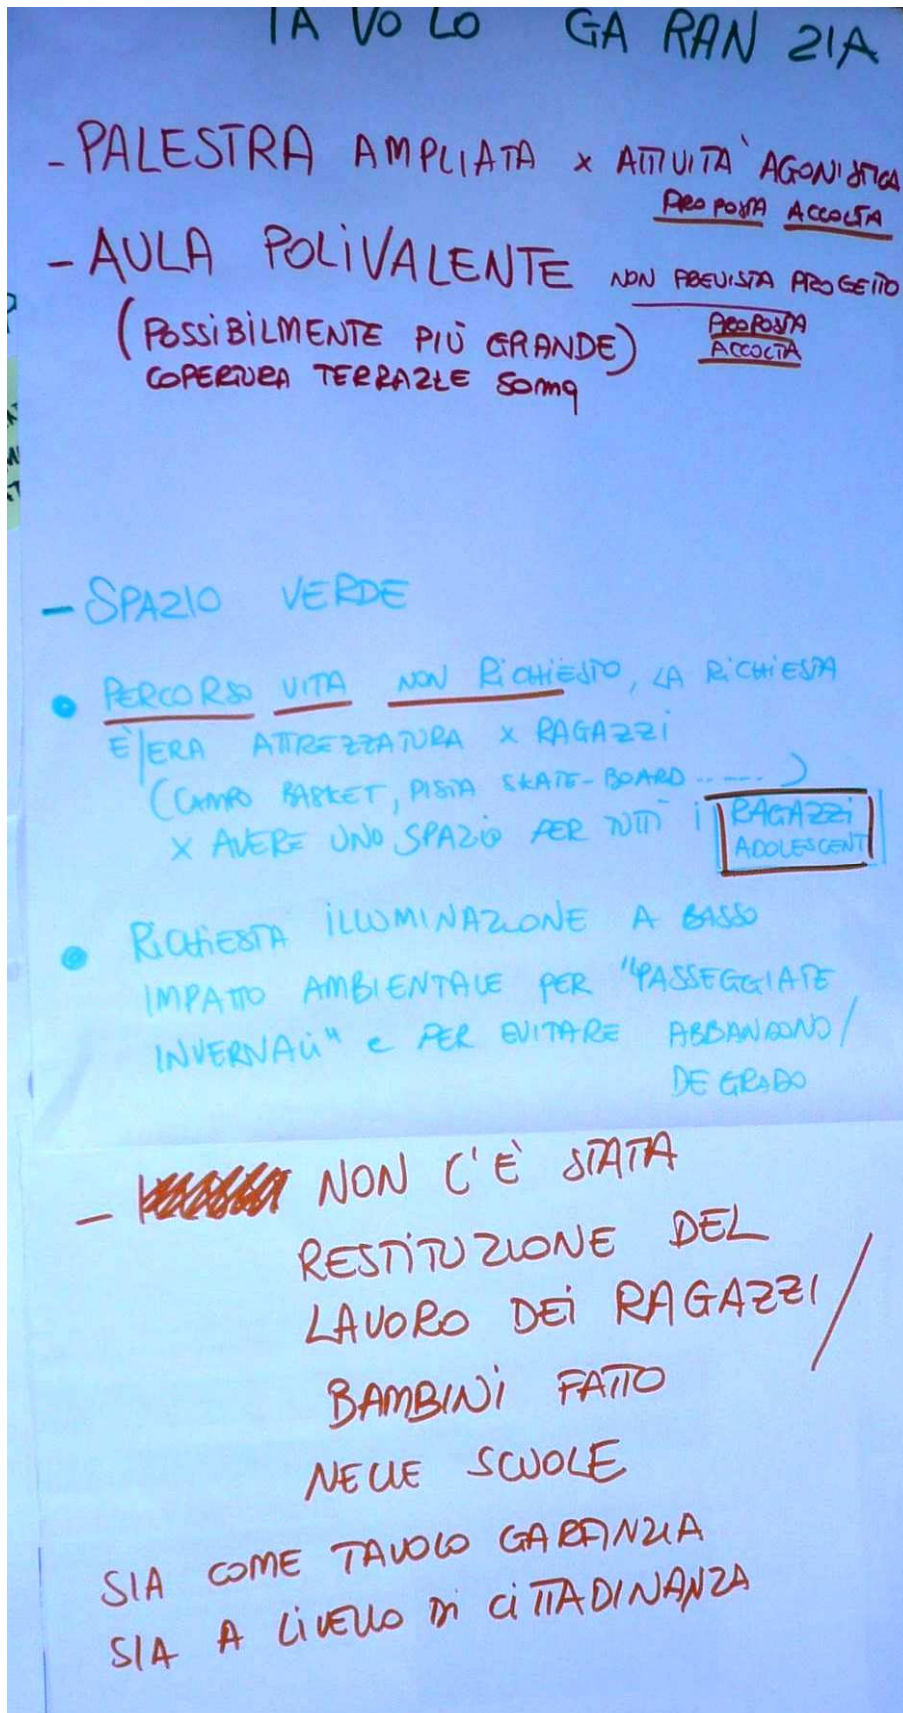 TAVOLO GARANZIA
- PALESTRA AMPLIATA x ATTIVITA' AGONISTICA
PROPOSTA ACCOLTA
- AULA POLIVALENTE NON PREVISTA PROGETTO
(POSSIBILMENTE PIÙ GRANDE) PROPOSTA
ACCOLTA
COPERTURA TERRAZZE 50mq
- SPAZIO VERDE
• PERCORSO VITA NON RICHIESTO, LA RICHIESTA
È/ERA ATTREZZATURA x RAGAZZI
(CAMPO BASKET, PISTA SKATE-BOARD ......)
x AVERE UNO SPAZIO PER TUTTI i RAGAZZI
ADOLESCENTI
• RICHIESTA ILLUMINAZIONE A BASSO
IMPATTO AMBIENTALE PER "PASSEGGIATE
INVERNALI" e PER EVITARE ABBANDONO/
DEGRADO
- NON C'È STATA
RESTITUZIONE DEL
LAVORO DEI RAGAZZI/
BAMBINI FATTO
NELLE SCUOLE
SIA COME TAVOLO GARANZIA
SIA A LIVELLO DI CITTADINANZA